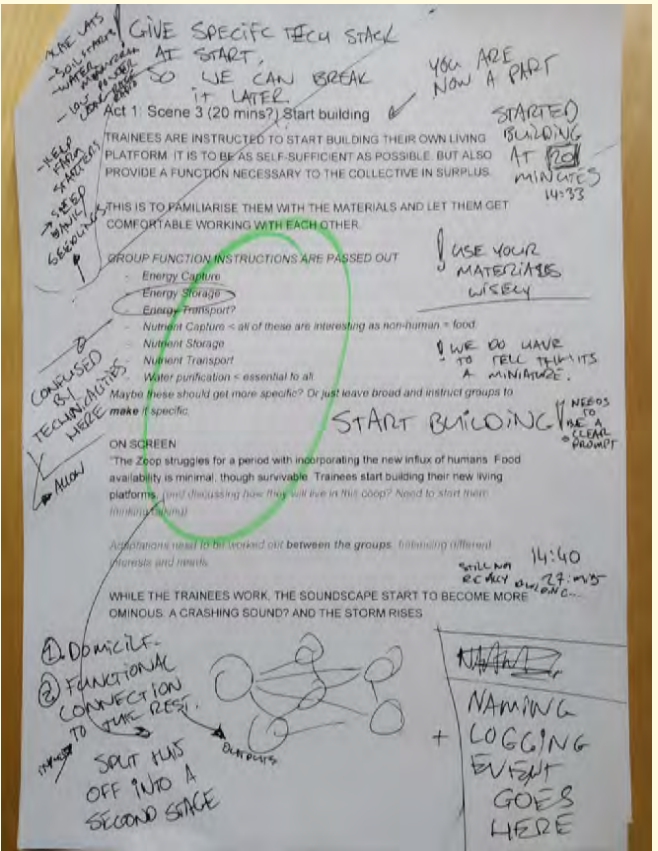 GIVE SPECIFC TECH STACK
AT START,
SO WE CAN BREAK
IT LATER.
- WATER
- LOW POWER
- KEEP
FARM
STARTERS
→ SEED
BANK/
SEEDLINGS
YOU ARE
NOW A PART
Act 1: Scene 3 (20 mins?) Start building
STARTED
BUILDING
AT 20
MINUTES
14:33
TRAINEES ARE INSTRUCTED TO START BUILDING THEIR OWN LIVING
PLATFORM. IT IS TO BE AS SELF-SUFFICIENT AS POSSIBLE. BUT ALSO
PROVIDE A FUNCTION NECESSARY TO THE COLLECTIVE IN SURPLUS.
THIS IS TO FAMILIARISE THEM WITH THE MATERIALS AND LET THEM GET
COMFORTABLE WORKING WITH EACH OTHER.
GROUP FUNCTION INSTRUCTIONS ARE PASSED OUT
- Energy Capture
- Energy Storage
- Energy Transport?
- Nutrient Capture < all of these are interesting as non-human = food
- Nutrient Storage
- Nutrient Transport
- Water purification < essential to all
Maybe these should get more specific? Or just leave broad and instruct groups to
make it specific.
! USE YOUR
MATERIALS
WISELY
! WE DO HAVE
TO TELL THEM ITS
A MINIATURE.
CONFUSED
BY
TECHNICALITIES
HERE
→ ALLOW
START BUILDING!
NEEDS
TO
BE A
CLEAR
PROMPT
ON SCREEN
"The Zoop struggles for a period with incorporating the new influx of humans. Food
availability is minimal, though survivable. Trainees start building their new living
platforms. (and discussing how they will live in this coop? Need to start them
thinking/talking)
Adaptations need to be worked out between the groups, balancing different
interests and needs.
14:40
STILL NOT
REALLY BUILDING...
27 MINS
WHILE THE TRAINEES WORK, THE SOUNDSCAPE START TO BECOME MORE
OMINOUS. A CRASHING SOUND? AND THE STORM RISES
① DOMICILE.
② FUNCTIONAL
CONNECTION
TO THE REST.
OUTPUTS
SPLIT THIS
OFF INTO A
SECOND STAGE
+ NAMING
LOGGING
EVENT
GOES
HERE